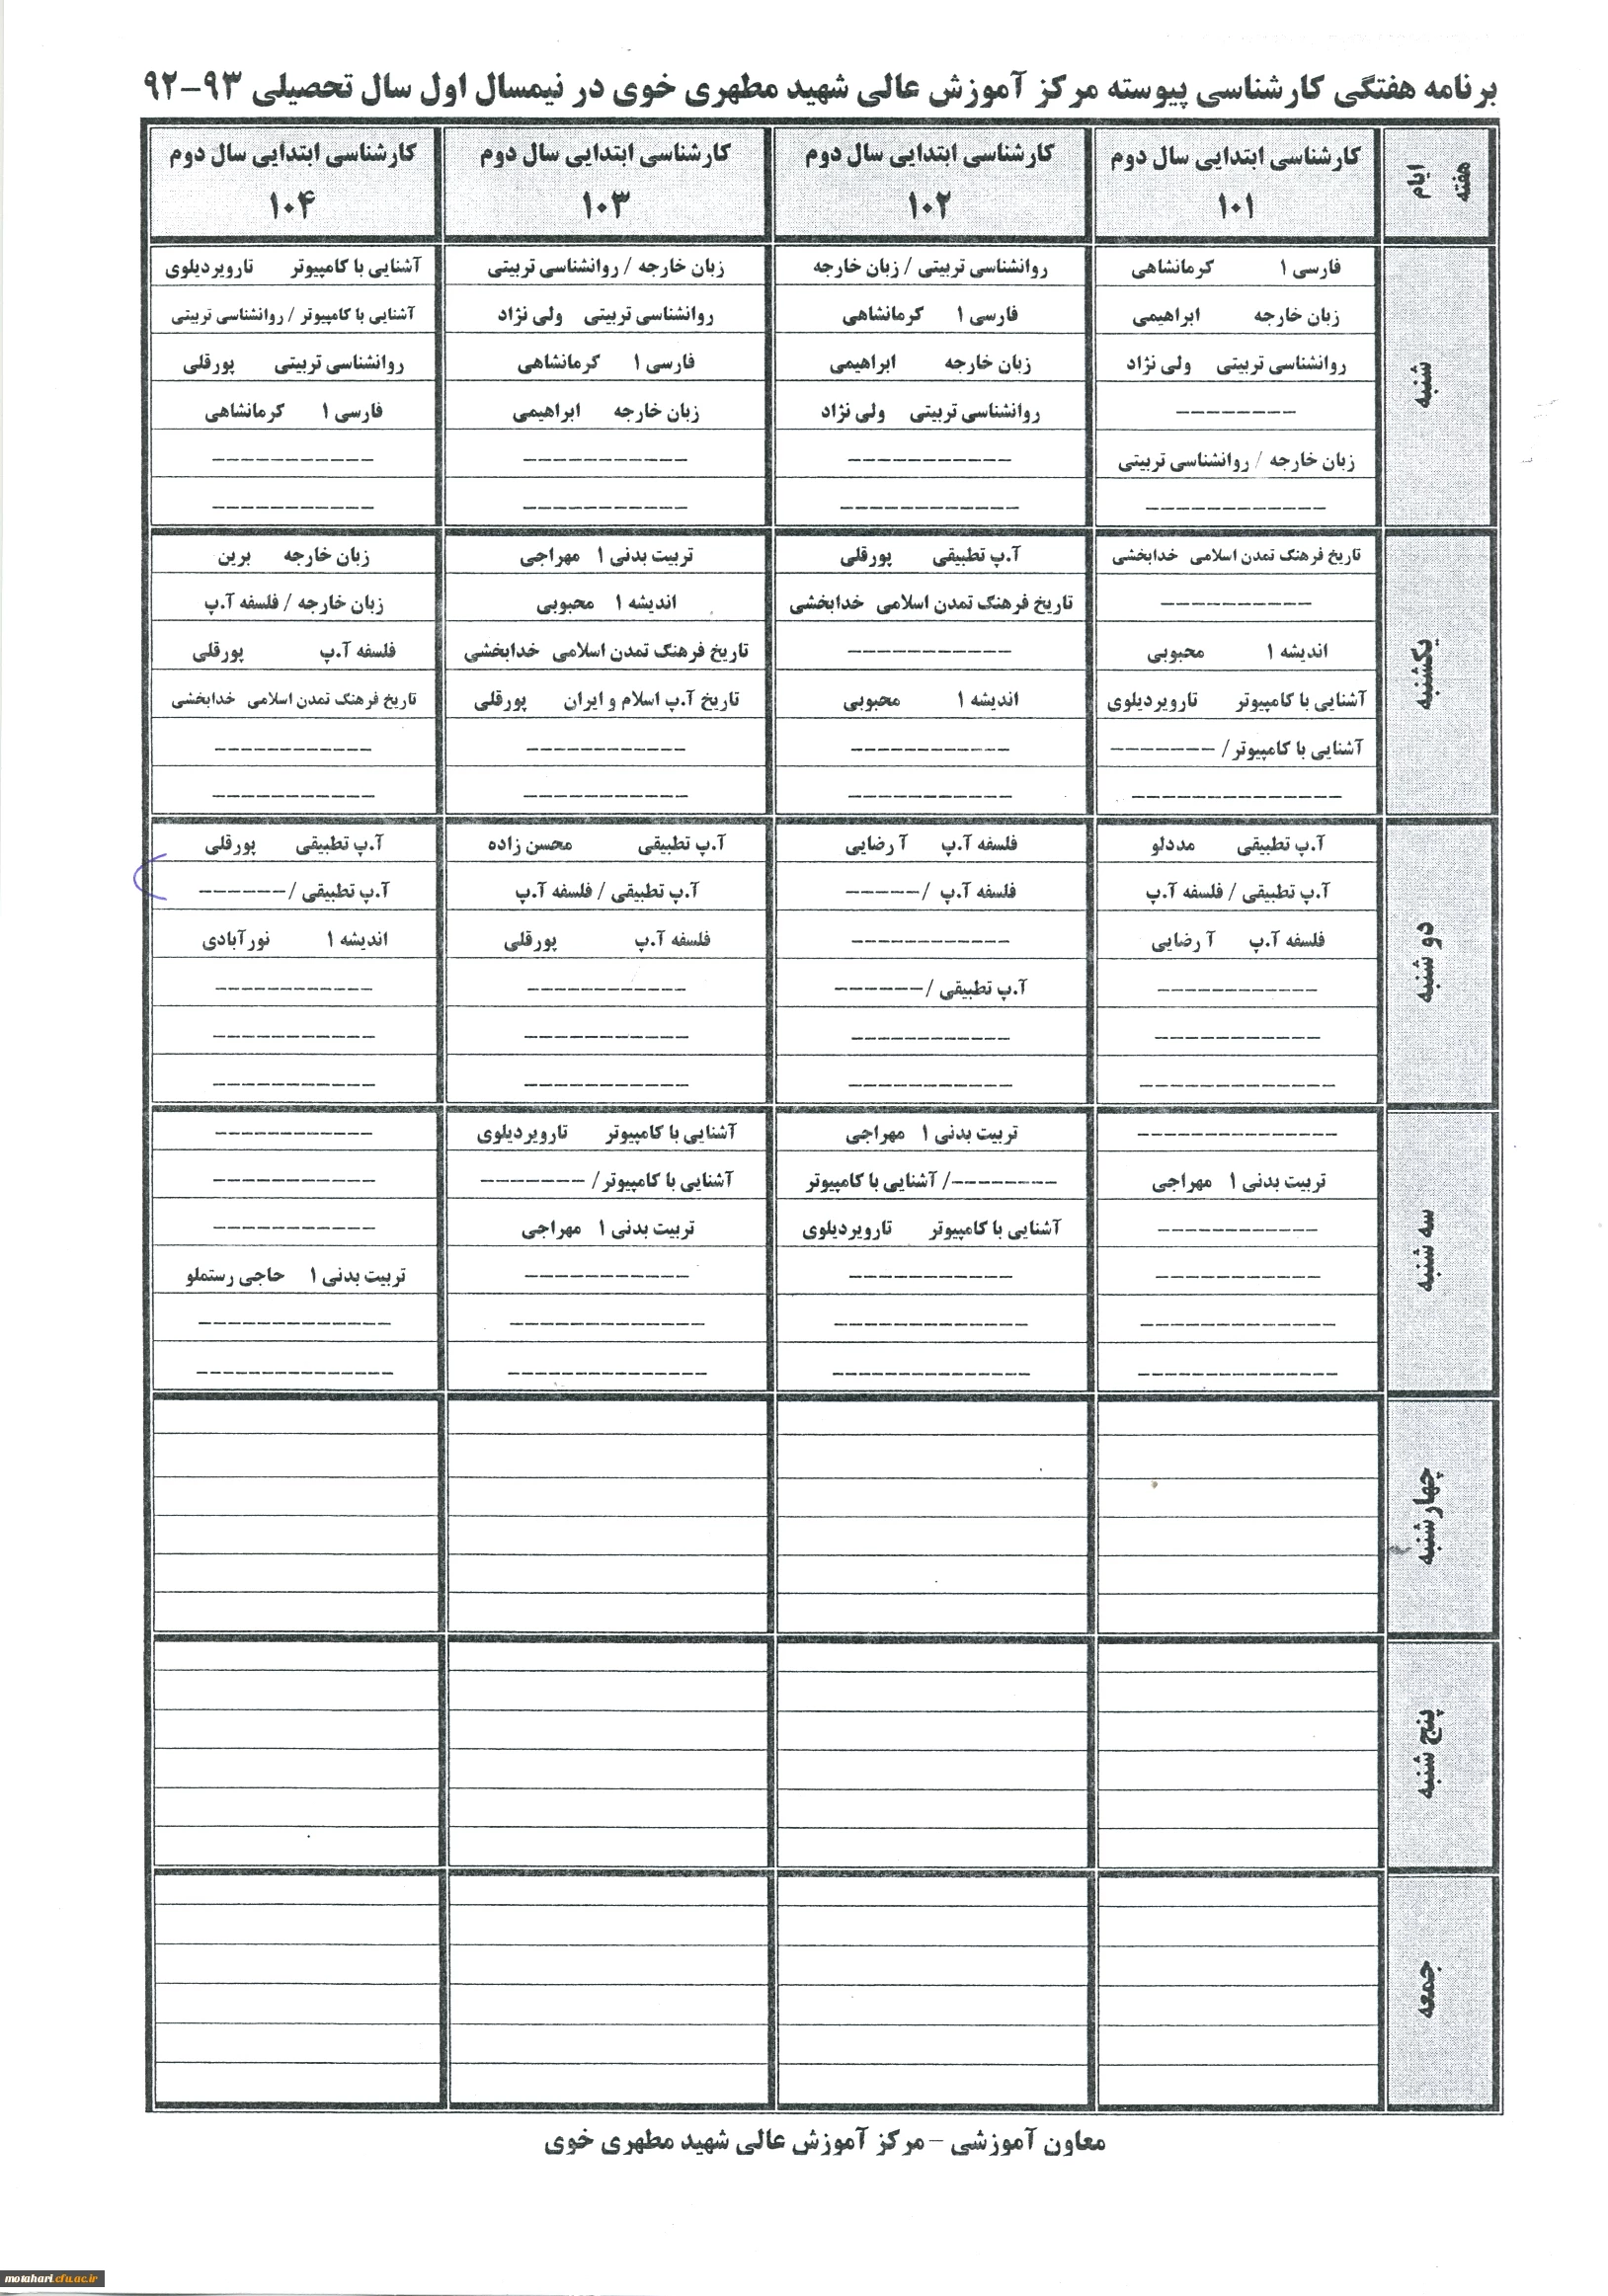 برنامه هفتگی کارشناسی پیوسته مرکز آموزش عالی شهید مطهری خوی در نیمسال اول سال تحصیلی ۹۳-۹۲
ایام هفته	کارشناسی ابتدایی سال دوم ۱۰۱	کارشناسی ابتدایی سال دوم ۱۰۲	کارشناسی ابتدایی سال دوم ۱۰۳	کارشناسی ابتدایی سال دوم ۱۰۴
شنبه
فارسی ۱ کرمانشاهی	روانشناسی تربیتی / زبان خارجه	زبان خارجه / روانشناسی تربیتی	آشنایی با کامپیوتر تارویردیلوی
زبان خارجه ابراهیمی	فارسی ۱ کرمانشاهی	روانشناسی تربیتی ولی نژاد	آشنایی با کامپیوتر / روانشناسی تربیتی
روانشناسی تربیتی ولی نژاد	زبان خارجه ابراهیمی	فارسی ۱ کرمانشاهی	روانشناسی تربیتی پورقلی
--------	روانشناسی تربیتی ولی نژاد	زبان خارجه ابراهیمی	فارسی ۱ کرمانشاهی
زبان خارجه / روانشناسی تربیتی	-----------	-----------	-----------
------------	------------	-----------	-----------
یکشنبه
تاریخ فرهنگ تمدن اسلامی خدابخشی	آ.پ تطبیقی پورقلی	تربیت بدنی ۱ مهراجی	زبان خارجه برین
----------	تاریخ فرهنگ تمدن اسلامی خدابخشی	اندیشه ۱ محبوبی	زبان خارجه / فلسفه آ.پ
اندیشه ۱ محبوبی	-----------	تاریخ فرهنگ تمدن اسلامی خدابخشی	فلسفه آ.پ پورقلی
آشنایی با کامپیوتر تارویردیلوی	اندیشه ۱ محبوبی	تاریخ آ.پ اسلام و ایران پورقلی	تاریخ فرهنگ تمدن اسلامی خدابخشی
آشنایی با کامپیوتر/ -------	-----------	-----------	-----------
--------------	-----------	-----------	-----------
دو شنبه
آ.پ تطبیقی مددلو	فلسفه آ.پ آ رضایی	آ.پ تطبیقی محسن زاده	آ.پ تطبیقی پورقلی
آ.پ تطبیقی / فلسفه آ.پ	فلسفه آ.پ /-----	آ.پ تطبیقی / فلسفه آ.پ	آ.پ تطبیقی /------
فلسفه آ.پ آ رضایی	-----------	فلسفه آ.پ پورقلی	اندیشه ۱ نورآبادی
-----------	آ.پ تطبیقی /------	-----------	-----------
-----------	-----------	-----------	-----------
-------------	-----------	-----------	-----------
سه شنبه
-------------	تربیت بدنی ۱ مهراجی	آشنایی با کامپیوتر تارویردیلوی	-----------
تربیت بدنی ۱ مهراجی	-------/ آشنایی با کامپیوتر	آشنایی با کامپیوتر/ -------	-----------
-----------	آشنایی با کامپیوتر تارویردیلوی	تربیت بدنی ۱ مهراجی	-----------
-----------	-----------	-----------	تربیت بدنی ۱ حاجی رستملو
-------------	-------------	-------------	-------------
-------------	-------------	-------------	-------------
چهارشنبه
پنج شنبه
جمعه
معاون آموزشی – مرکز آموزش عالی شهید مطهری خوی
motahari.cfu.ac.ir